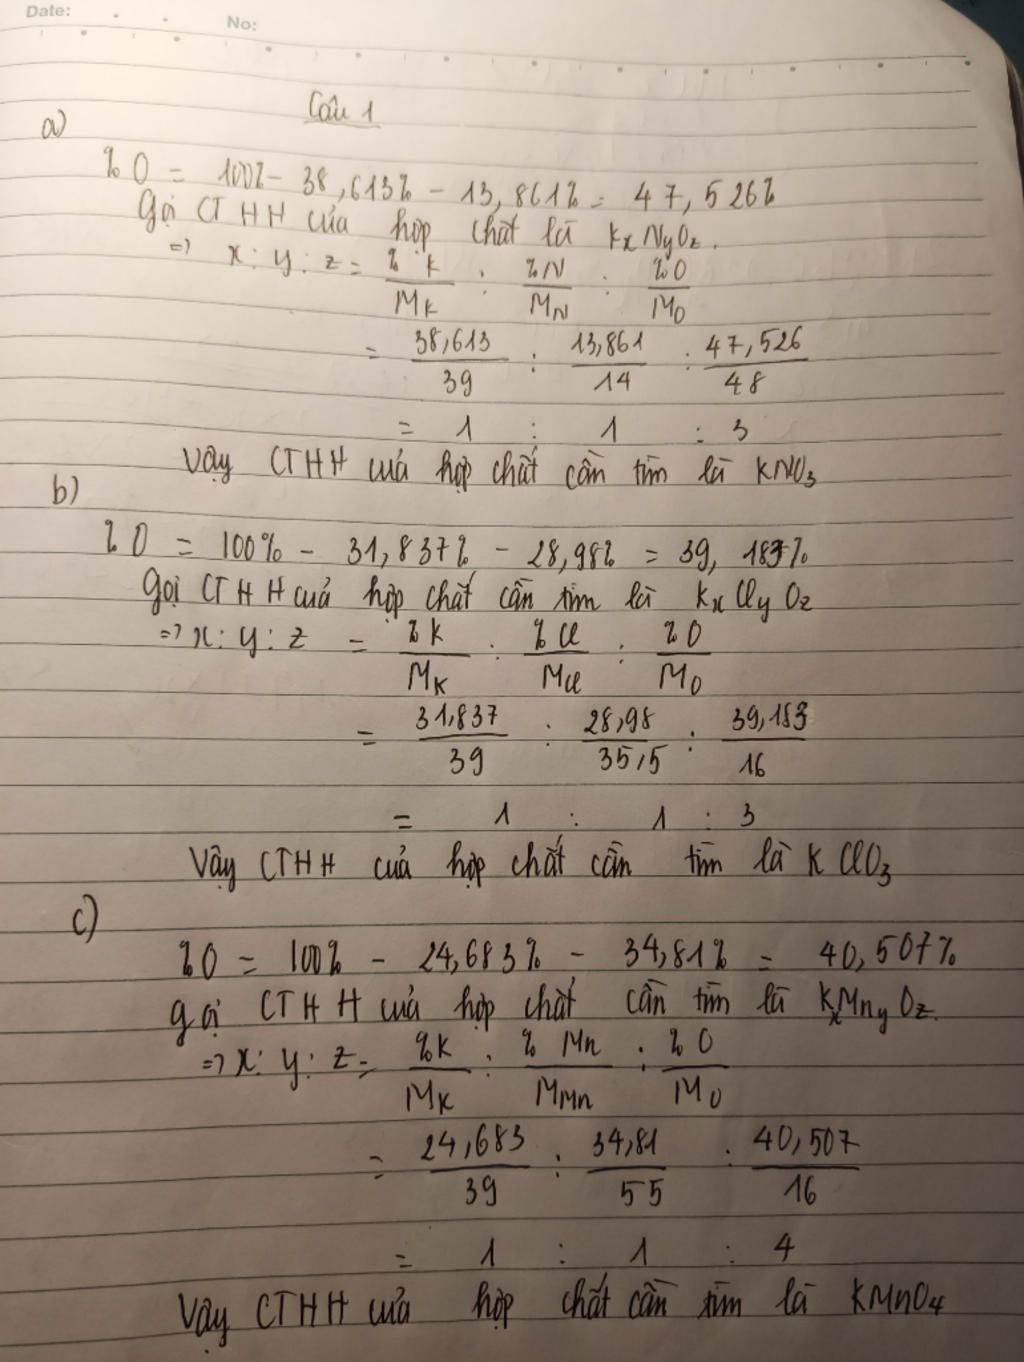 Date:
No:
Câu 1
a)
% O = 100% - 38,613% - 13,861% = 47,526%
Gọi CTHH của hợp chất là KxNyOz.
=> x : y : z = % K / MK : % N / MN : % O / MO
= 38,613 / 39 : 13,861 / 14 : 47,526 / 48
= 1 : 1 : 3
Vậy CTHH của hợp chất cần tìm là KNO3
b)
% O = 100% - 31,837% - 28,98% = 39,183%
Gọi CTHH cuả hợp chất cần tìm là KxClyOz
=> x : y : z = % K / MK : % Cl / MCl : % O / MO
= 31,837 / 39 : 28,98 / 35,5 : 39,183 / 16
= 1 : 1 : 3
Vậy CTHH của hợp chất cần tìm là KClO3
c)
% O = 100% - 24,683% - 34,81% = 40,507%
gọi CTHH của hợp chất cần tìm là KxMnyOz.
=> x : y : z = % K / MK : % Mn / MMn : % O / MO
= 24,683 / 39 : 34,81 / 55 : 40,507 / 16
= 1 : 1 : 4
Vậy CTHH của hợp chất cần tìm là KMnO4